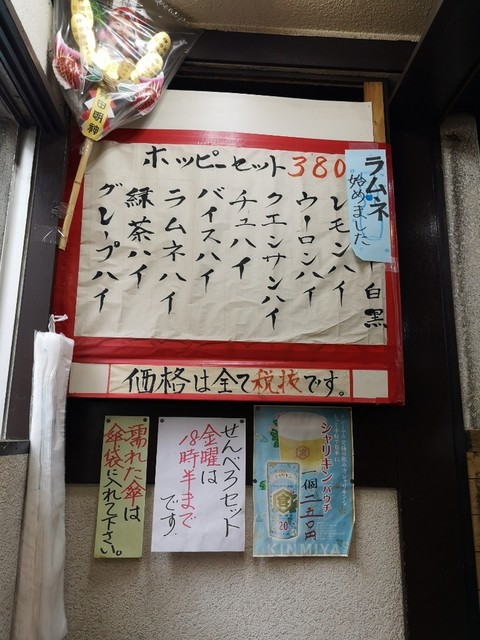 田明神
ホッピーセット380
ラムネ
始めました
白黒
レモンハイ
ウーロンハイ
クエンサンハイ
チュハイ
バイスハイ
ラムネハイ
緑茶ハイ
グレープハイ
価格は全て税抜です。
濡れた傘は
傘袋に入れて下さい。
せんべろセット
金曜は
18時半まで
です
シャリキンパウチ
一個二五〇円
20
KINMIYA